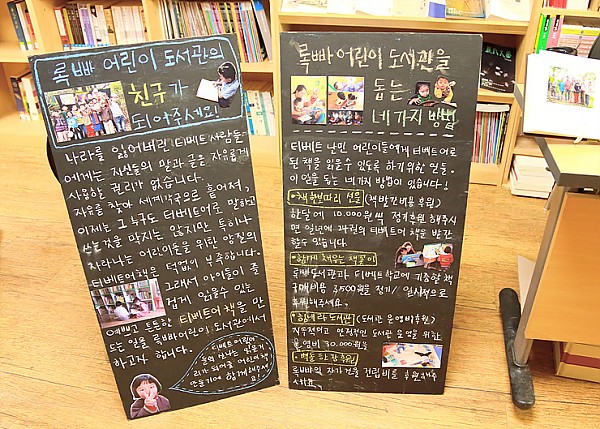 록빠 어린이 도서관의
친구가
되어주세요!
나라를 잃어버린 티베트 사람들
에게는 자신들의 말과 글은 자유롭게
사용할 권리가 없습니다.
자유를 찾아 세계각국으로 흩어져,
이제는 그 누구도 티베트어로 말하고
쓰는것을 막지는 않지만 특히나
자라나는 어린이들을 위한 양질의
티베트어책은 턱없이 부족합니다.
그래서 아이들이 즐
겁게 읽을수 있는
예쁘고 튼튼한 티베트어 책을 만
드는 일을 록빠어린이 도서관에서
하고자 합니다.
티베트어린이
록빠 어린이 도서관을
돕는
네가지 방법
티베트 난민 어린이들에게 티베트어로
된 책을 읽을수 있도록 하기위한 만들.
이 일을 돕는 네가지 방법이 있습니다!
책 한보따리 선물 (책발간비용 후원)
한달에 10.000원씩, 정기후원 해주시
면 일년에 과권의 티베트어 책을 발간
할수 있습니다.
함께 채우는 책꽂이
록빠도서관과 티베트학교에 기증할 책
구매비용 3,500원을 정기/일시적으로
후원해주세요.
함께라 도서관 (도서관 운영비후원)
지속적이고 안정적인 도서관 운영을 위한
운영비 30.000원을
벽돌 한장 후원
록빠의 자가건물 건립비를 후원해주
세요.